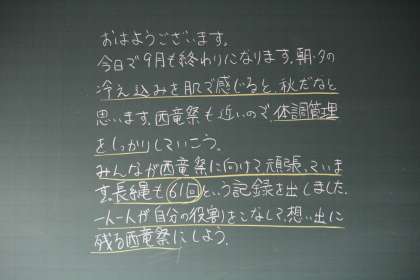 おはようございます。
今日で9月も終わりになります。朝・夕の
冷え込みを肌で感じると、秋だなと
思います。西竜祭も近いので、体調管理
をしっかりしていこう。
みんなが西竜祭に向けて頑張っていま
す。長縄も61回という記録を出しました。
一人一人が自分の役割をこなして、想い出に
残る西竜祭にしよう。